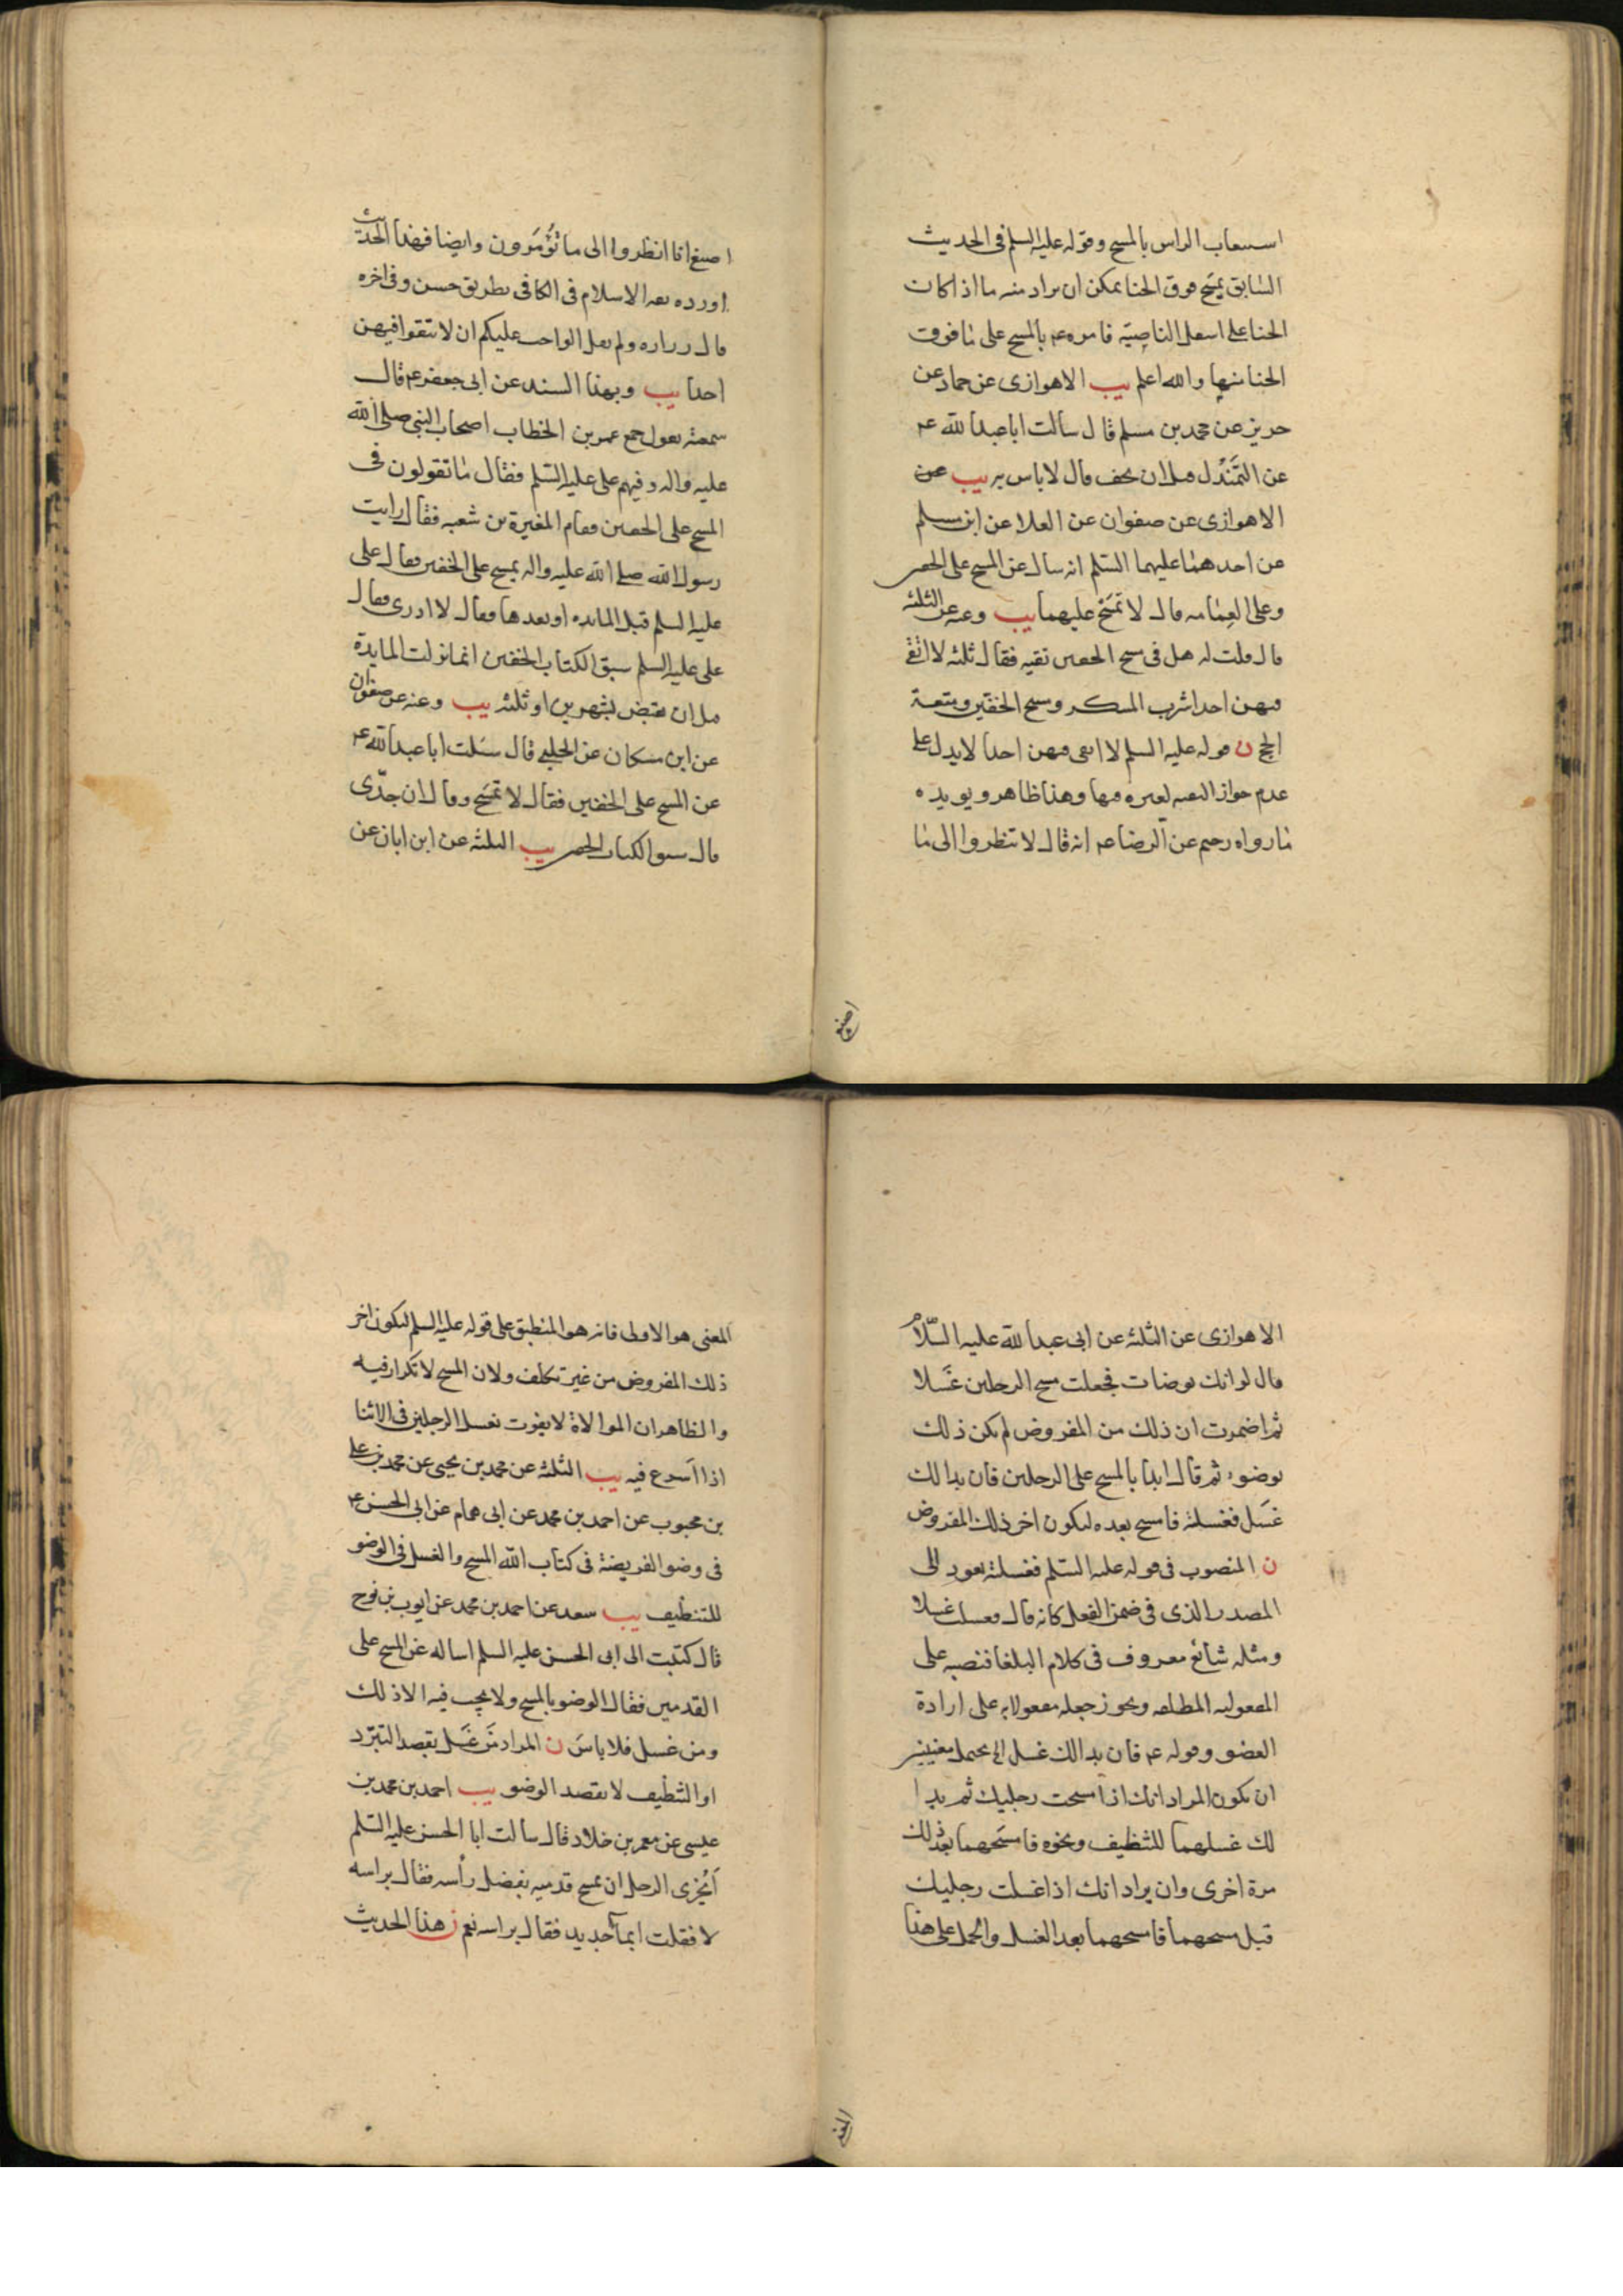 استيعاب الراس بالمسح وقوله عليه السلم فى الحديث
السابق يمسح فوق الحنا يمكن ان يراد منه ما اذا كانت
الحنا على اسفل الناصية فامره ع بالمسح على ما فوق
الحنا منها والله اعلم يب الاهوازى عن حماد عن
حريز عن محمد بن مسلم قال سالت ابا عبد الله ع
عن التمندل قبل ان يجف قال لا باس به يب عن
الاهوازى عن صفوان عن العلا عن ابن مسلم
عن احدهما عليهما السلم انه سال عن المسح على الخفين
وعلى العمامه قال لا تمسح عليهما يب وعنه عن الثلثه
قال قلت له هل فى مسح الخفين تقيه فقال ثلثه لا اتقى
فيهن احدا شرب المسكر ومسح الخفين ومتعة
الحج ن قوله عليه السلم لا اتقى فيهن احدا لا يدل على
عدم جواز التقيه لغيره فيها وهذا ظاهر ويويده
ما رواه رحيم عن الرضا ع انه قال لا تنظروا الى ما
اصنع
اصنع انا انظروا الى ما تؤمرون وايضا فهذا الحديث
اورده ثقه الاسلام فى الكافى بطريق حسن وفى اخره
قال زراره ولم يقل الواجب عليكم ان لا تتقوا فيهن
احدا يب وبهذا السند عن ابى جعفر ع قال
سمعته يقول جمع عمر بن الخطاب اصحاب النبى صلى الله
عليه واله وفيهم على عليه السلم فقال ما تقولون فى
المسح على الخفين فقام المغيرة بن شعبه فقال رايت
رسول الله صلى الله عليه واله يمسح على الخفين فقال على
عليه السلم قبل المايده او بعدها فقال لا ادرى فقال
على عليه السلم سبق الكتاب الخفين انما نزلت المايدة
قبل ان يقبض بشهرين او ثلثه يب وعنه عن صفوان
عن ابن مسكان عن الحلبى قال سئلت ابا عبد الله ع
عن المسح على الخفين فقال لا تمسح وقال ان جدى
قال سبق الكتاب الخفين يب الثلثه عن ابن ابان عن
الاهوازى عن الثلثه عن ابى عبد الله عليه السلام
قال لو انك توضات فجعلت مسح الرجلين غسلا
ثم اضمرت ان ذلك من المفروض لم يكن ذلك
بوضوء ثم قال ابدا بالمسح على الرجلين فان بدا لك
غسل فغسلته فامسح بعده ليكون اخر ذلك المفروض
ن المنصوب فى قوله عليه السلم فغسلته يعود الى
المصدر الذى فى ضمن الفعل كانه قال فغسلت غسلا
ومثله شائع معروف فى كلام البلغا فنصبه على
المفعوليه المطلقه ويجوز جعله مفعولا به على ارادة
العضو وقوله ع فان بدا لك غسل الخ يحتمل معنيين
ان يكون المراد انك اذا مسحت رجليك ثم بدا
لك غسلهما للتنظيف ونحوه فامسحهما بعد ذلك
مرة اخرى وان يراد انك اذا غسلت رجليك
قبل مسحهما فامسحهما بعد الغسل والحمل على هذا
المعنى
المعنى هو الاولى فانه هو المنطبق على قوله عليه السلم ليكون اخر
ذلك المفروض من غير تكلف ولان المسح لا تكرار فيه
والظاهر ان الموالاة لا يفوت بغسل الرجلين فى الاثنا
اذا اسرع فيه يب الثلثه عن محمد بن يحيى عن محمد بن على
بن محبوب عن احمد بن محمد عن ابى همام عن ابى الحسن ع
فى وضو الفريضة فى كتاب الله المسح والغسل فى الوضو
للتنظيف يب سعد عن احمد بن محمد عن ايوب بن نوح
قال كتبت الى ابى الحسن عليه السلم اساله عن المسح على
القدمين فقال الوضو بالمسح ولا يجب فيه الا ذلك
ومن غسل فلا باس ن المراد من غسل بقصد التبرد
او التنظيف لا بقصد الوضو يب احمد بن محمد بن
عيسى عن معمر بن خلاد قال سالت ابا الحسن عليه السلم
ايجزى الرجل ان يمسح قدميه بفضل رأسه فقال براسه
لا فقلت ابماء جديد فقال براسه نعم ن هذا الحديث